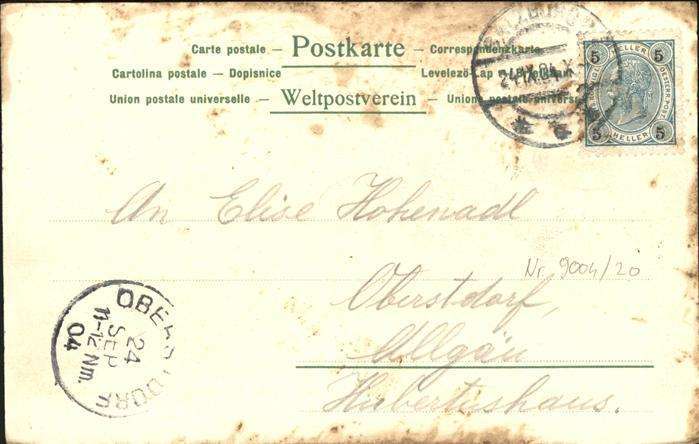 Carte postale – Postkarte – Correspondenzkarte
Cartolina postale – Dopisnice
Levelező-Lap
Union postale universelle – Weltpostverein – Union postale univers
5 5
HELLER
5 HELLER 5
An Elise Hohenadl
Nr. 9004/20
Oberstdorf,
Allgäu
Hubertushaus.
OBERSTDORF
24
SEP
11-12 Nm.
04